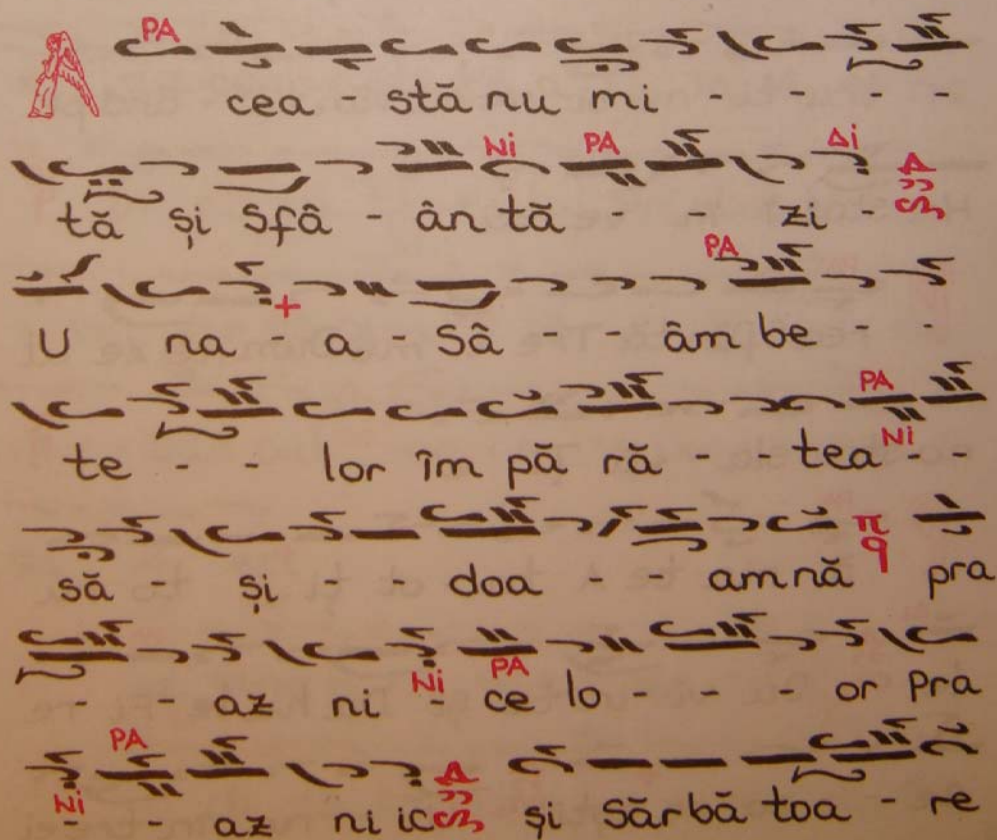 PA
A cea - stă nu mi - - - -
Ni PA Δi
tă și Sfâ - ân tă - - zi - Δ
PA
U na - a - Sâ - - âm be - -
PA
Ni
te - - lor îm pă ră - - tea - -
să - și - - doa - - am nă π q pra
Ni PA
- - az ni - ce lo - - - or Pra
PA
Ni
- - az ni ic Δ și Sărbă toa - re